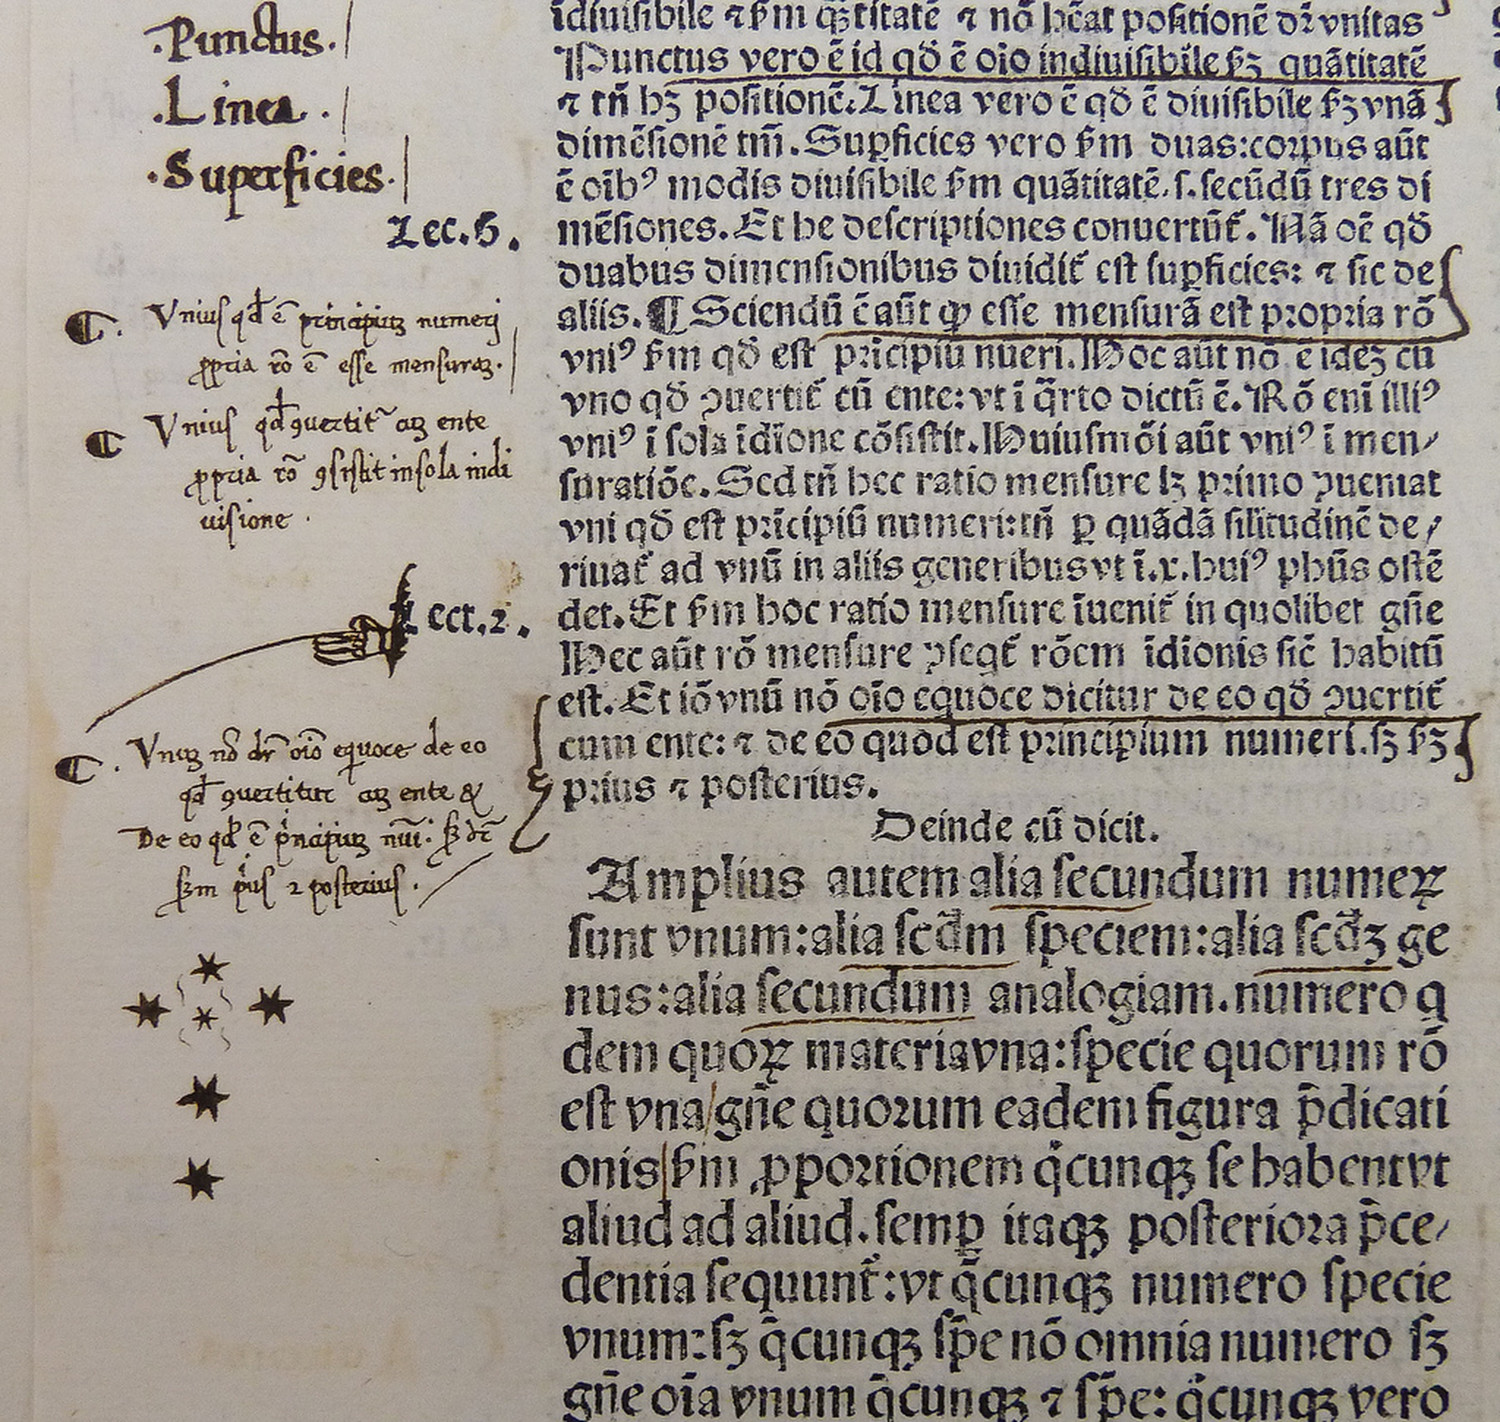 .Punctus.
.Linea.
.Superficies.
Lec.6.
Vnius qd̄ ē principiuꝫ numeri
ꝓpria rō ē esse mensuraꝫ.
Vnius qd̄ ꝯuertit̄ cuꝫ ente
ꝓpria rō ꝯsistit in sola indi
uisione.
Lect.2.
Vnuꝫ nō dr̄ oīo equoce de eo
qd̄ ꝯuertitur cuꝫ ente &
De eo qd̄ ē p̄ncipiuꝫ nūi. sꝫ dr̄
sꝫm p̄us ⁊ posterius.
īdiuisibile ⁊ ẜm quātitatē ⁊ nō hēat positionē dr̄ vnitas
Punctus vero ē id qđ ē oīo indiuisibile ẜꝫ quātitatē
⁊ tn̄ hꝫ positionē. Linea vero ē qđ ē diuisibile ẜꝫ vnā
dimēsionē tm̄. Suꝑficies vero ẜm duas: corpus aūt
ē oībꝰ modis diuisibile ẜm quātitatē. ſ. ſecūdū tres di
mēſiones. Et he deſcriptiones conuertūt̄. Nā oē qđ
duabus dimenſionibus diuidit̄ eſt ſuꝑficies: ⁊ ſic de
aliis. ¶ Sciendū ē aūt ꝙ eſſe menſurā eſt propria rō
vniꝰ ẜm qđ eſt prīcipiū nūeri. Hoc aūt nō ē ideꝫ cū
vno qđ ꝯuertit̄ cū ente: vt ī q̄rto dictū ē. Rō eni illiꝰ
vniꝰ ī ſola īdiōne cōſiſtit. Huiuſmōi aūt vniꝰ ī men⸗
ſuratiōe. Sed tn̄ hec ratio menſure lꝫ primo ꝯueniat
vni qđ eſt prīcipiū numeri: tn̄ ꝑ quādā ſilitudinē de⸗
riuat̄ ad vnū in aliis generibus vt ī.x. huiꝰ phūs oſtē
det. Et ẜm hoc ratio menſure īuenit̄ in quolibet gn̄e
Hec aūt rō menſure ꝯſeqt̄ rōem īdiōnis ſic̄ habitū
eſt. Et iō vnū nō oīo equoce dicitur de eo qđ ꝯuertit̄
cum ente: ⁊ de eo quod eſt principium numeri. ſꝫ ẜꝫ
prius ⁊ poſterius.
Deinde cū dicit.
Amplius autem alia ſecundum numeꝝ
ſunt vnum: alia ſcđm ſpeciem: alia ſcđꝫ ge
nus: alia ſecundum analogiam. numero q
dem quoꝝ materia vna: ſpecie quorum rō
eſt vna/ gn̄e quorum eadem figura p̄dicati
onis/ ẜm ꝓportionem q̄cunqꝫ ſe habent vt
aliud ad aliud. ſemꝑ itaqꝫ poſteriora p̄ce⸗
dentia ſequunt̄: vt q̄cunqꝫ numero ſpecie
vnum: ſꝫ q̄cunqꝫ ſpē nō omnia numero ſꝫ
gn̄e oīa vnum q̄cunqꝫ ⁊ ſpē: q̄cunqꝫ vero